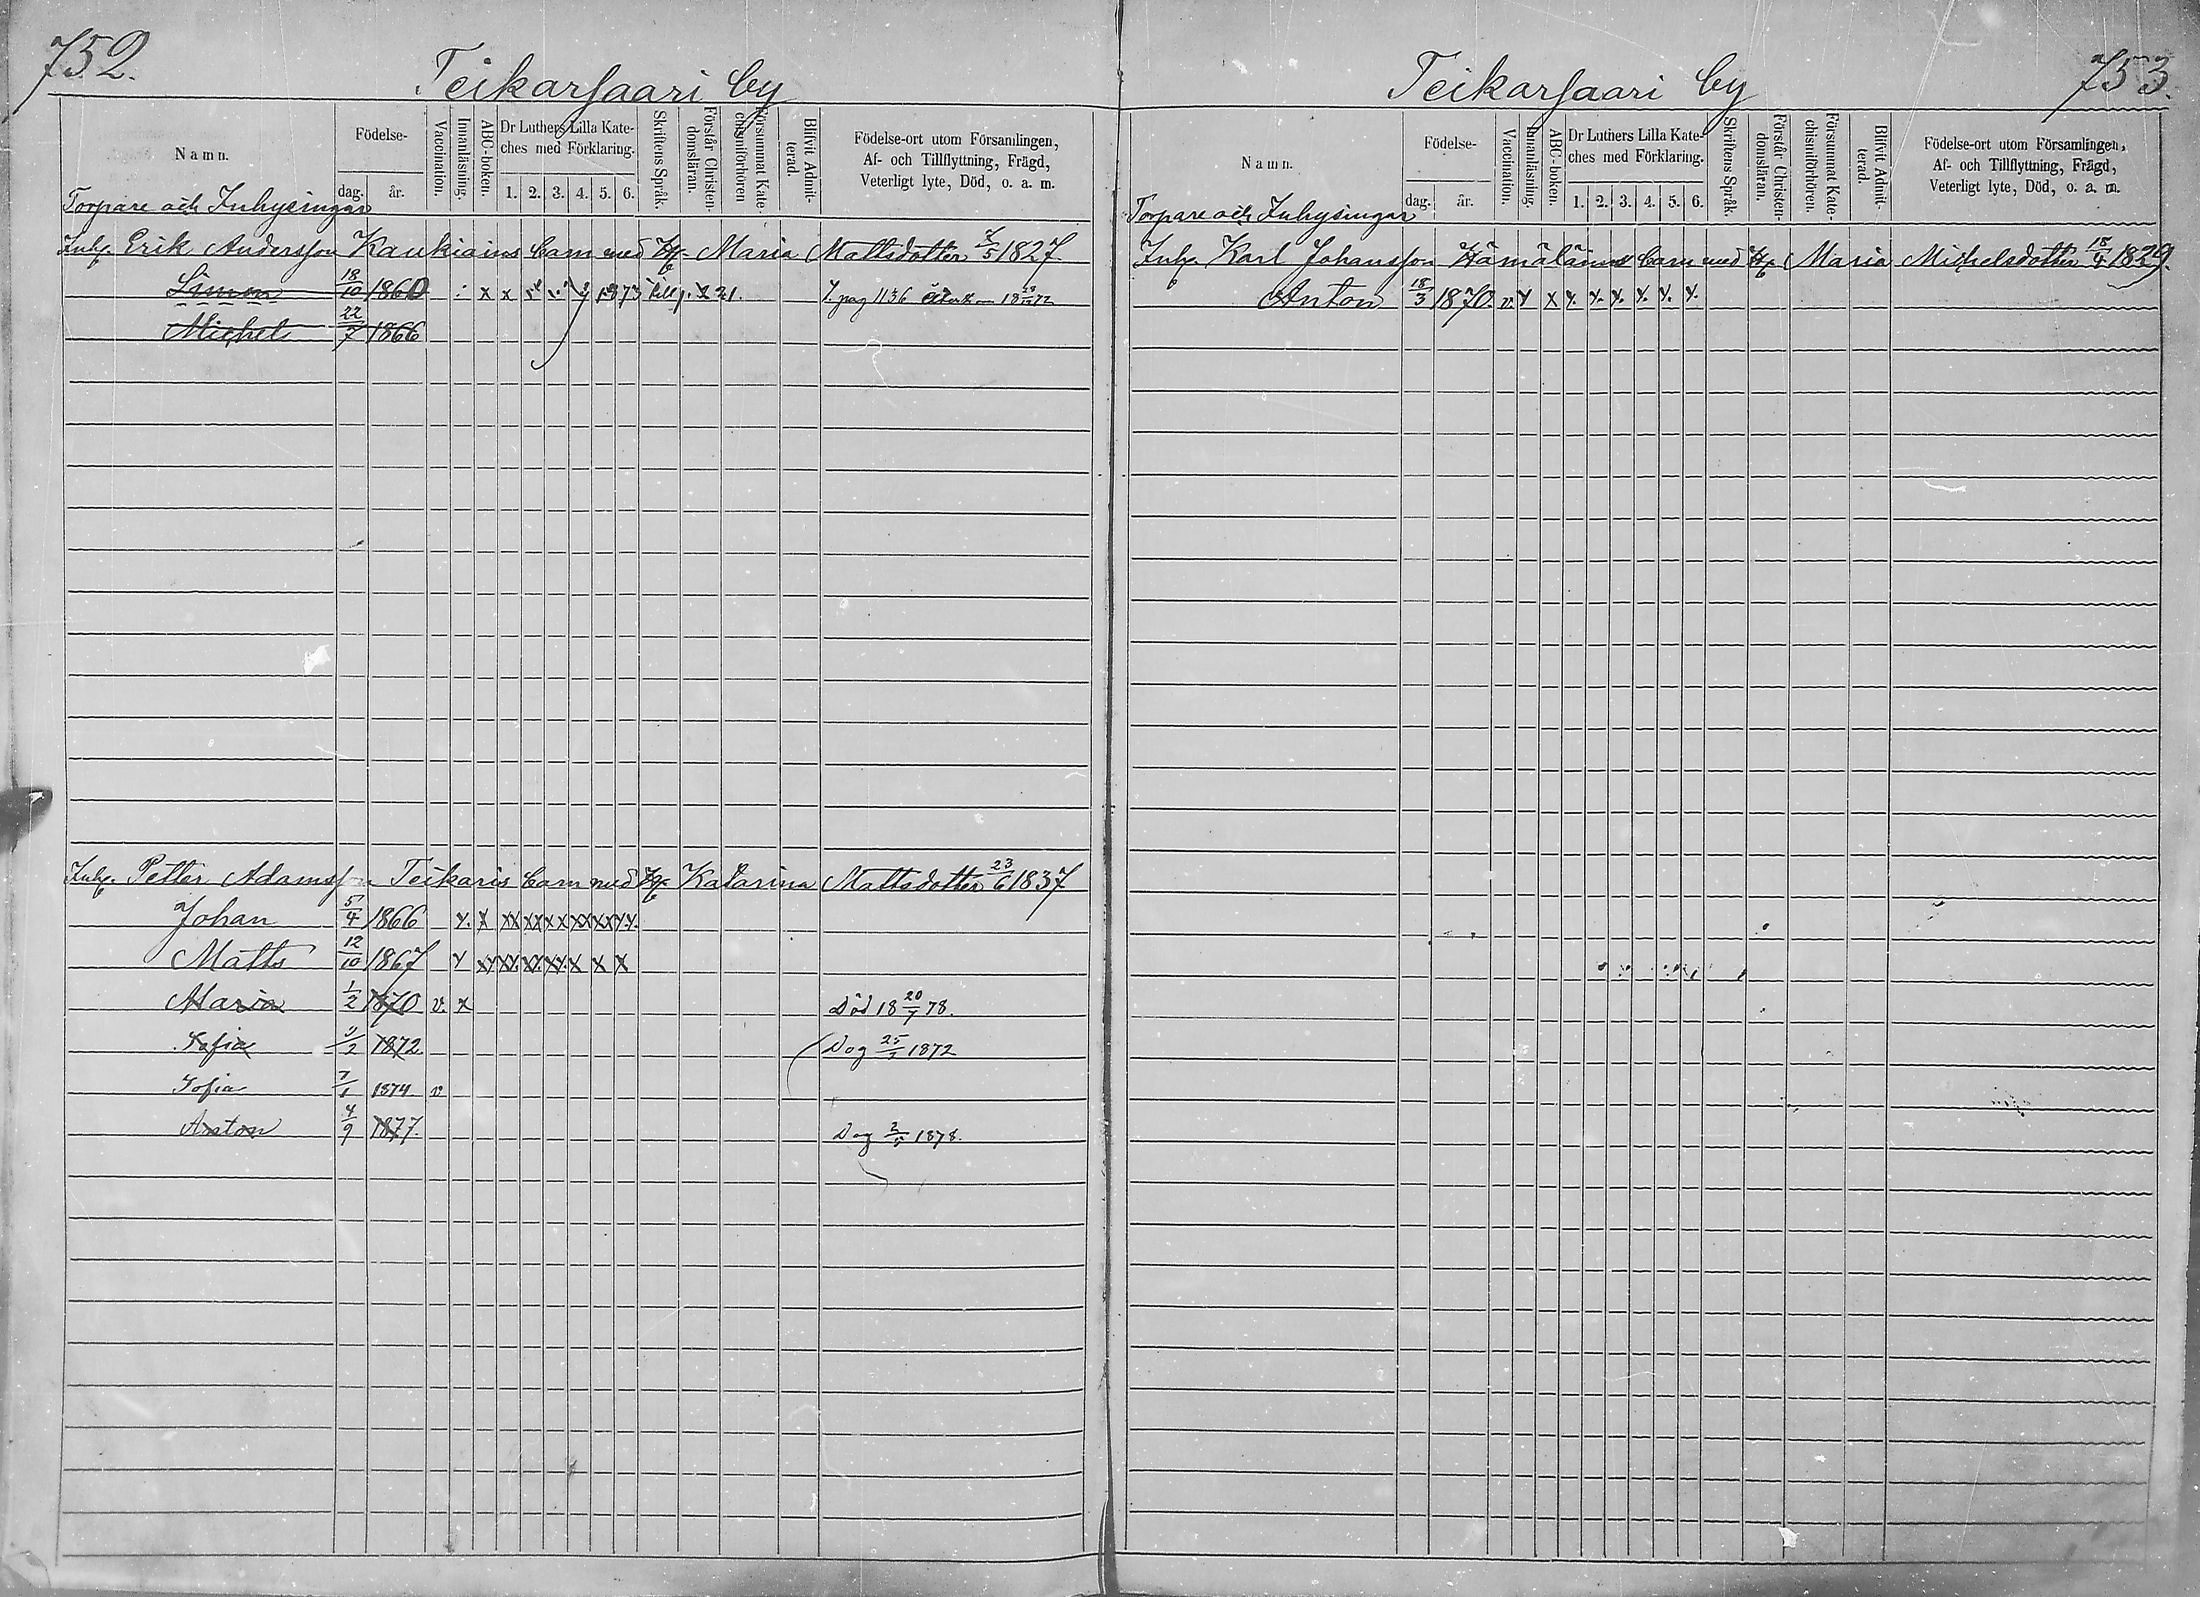 752.
Teikarsaari by
Namn.
Födelse-
dag. år.
Vaccination.
Innanläsning.
ABC-boken.
Dr Luthers Lilla Kate-
ches med Förklaring.
1. 2. 3. 4. 5. 6.
Skriftens Språk.
Förstår Christen-
domsläran.
Försummat Kate-
chismiförhören
Blifvit Admit-
terad.
Födelse-ort utom Församlingen,
Af- och Tillflyttning, Frägd,
Veterligt lyte, Död, o. a. m.
Torpare och Inhysingar
Inh. Erik Andersson Kaukiains barn med H. Maria Mattsdotter 7/5 1827
Simon 18/10 1860 x x 1873 pag 1136
Michel 22/7 1866
Inh. Petter Adamsson Teikaris barn med H. Katarina Mattsdotter 23/6 1837
Johan 5/4 1866 x. x xx xx xx xx xx x.x.
Matts 12/10 1867 x xx xx. xx. xx. x x x
Maria 1/2 1870 v. x Död 18 20/7 78.
Sofia 1872 Dog 1872
Sofia 1874 v
Anton 4/9 1877. Dog 1878.
753.
Teikarsaari by
Namn.
Födelse-
dag. år.
Vaccination.
Innanläsning.
ABC-boken.
Dr Luthers Lilla Kate-
ches med Förklaring.
1. 2. 3. 4. 5. 6.
Skriftens Språk.
Förstår Christen-
domsläran.
Försummat Kate-
chismiförhören.
Blifvit Admit-
terad.
Födelse-ort utom Församlingen,
Af- och Tillflyttning, Frägd,
Veterligt lyte, Död, o. a. m.
Torpare och Inhysingar
Inh. Karl Johansson Hämäläinens barn med H. Maria Michelsdotter 18/4 1829.
Anton 18/3 1870. v. x x x. x. x. x. x. x.